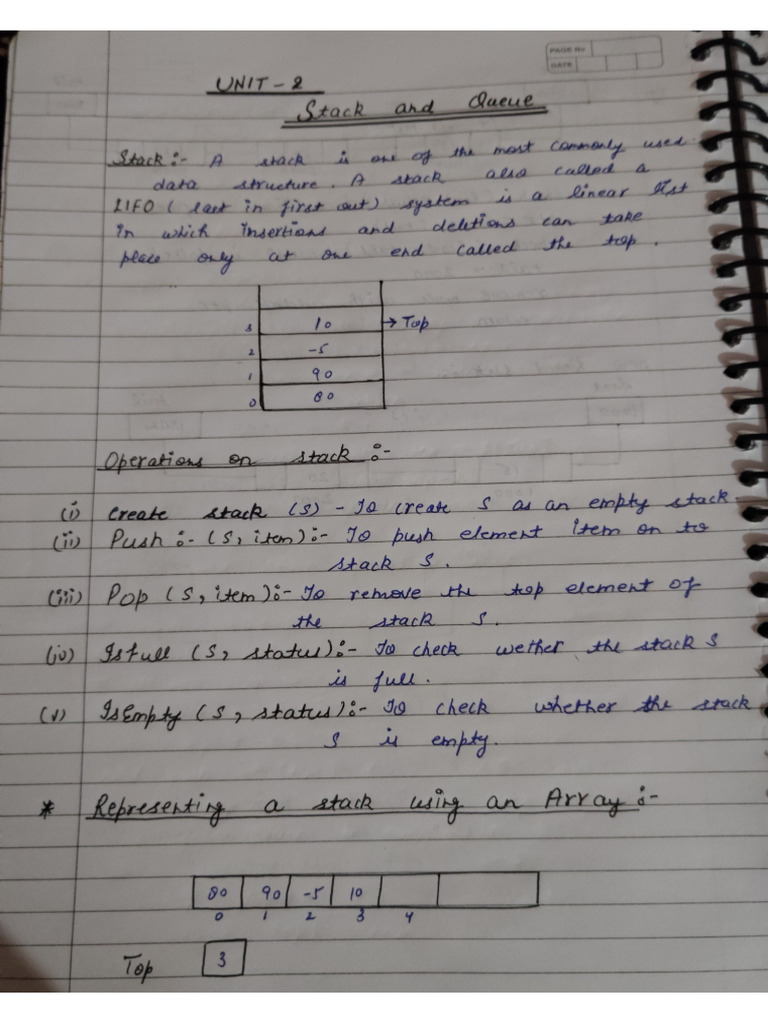 PAGE No
DATE
UNIT - 2
Stack and Queue
Stack :- A stack is one of the most commonly used
data structure. A stack also called a
LIFO ( last in first out) system is a linear list
in which insertions and deletions can take
place only at one end called the top.
3 10 → Top
2 -5
1 90
0 80
Operations on stack :-
(i) Create stack (S) - To create S as an empty stack.
(ii) Push :- (S, item) :- To push element item on to
stack S.
(iii) Pop (S, item) :- To remove the top element of
the stack S.
(iv) Isfull (S, status) :- To check wether the stack S
is full.
(v) IsEmpty (S, status) :- To check whether the stack
S is empty.
* Representing a stack using an Array :-
80 90 -5 10
0 1 2 3 4
Top 3